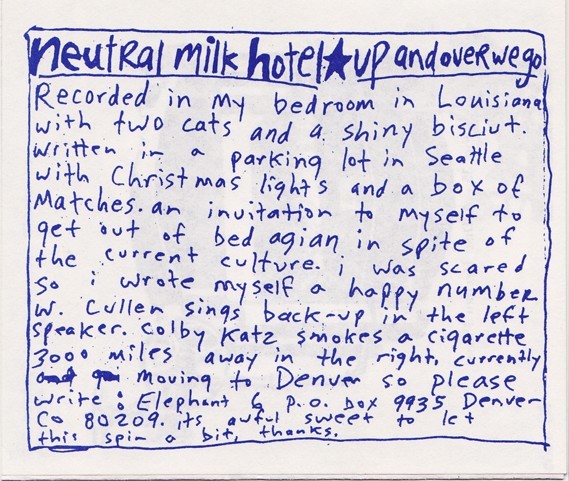 neutral milk hotel ★ up and over we go
Recorded in my bedroom in Louisiana
with two cats and a shiny bisciut.
written in a parking lot in Seattle
with Christmas lights and a box of
Matches. an invitation to myself to
get out of bed agian in spite of
the current culture. i was scared
so i wrote myself a happy number
W. Cullen sings back-up in the left
speaker. Colby Katz smokes a cigarette
3000 miles away in the right, currently
moving to Denver so please
write: Elephant 6 P.O. box 9935 Denver
Co 80209. its awful sweet to let
this spin a bit, thanks.